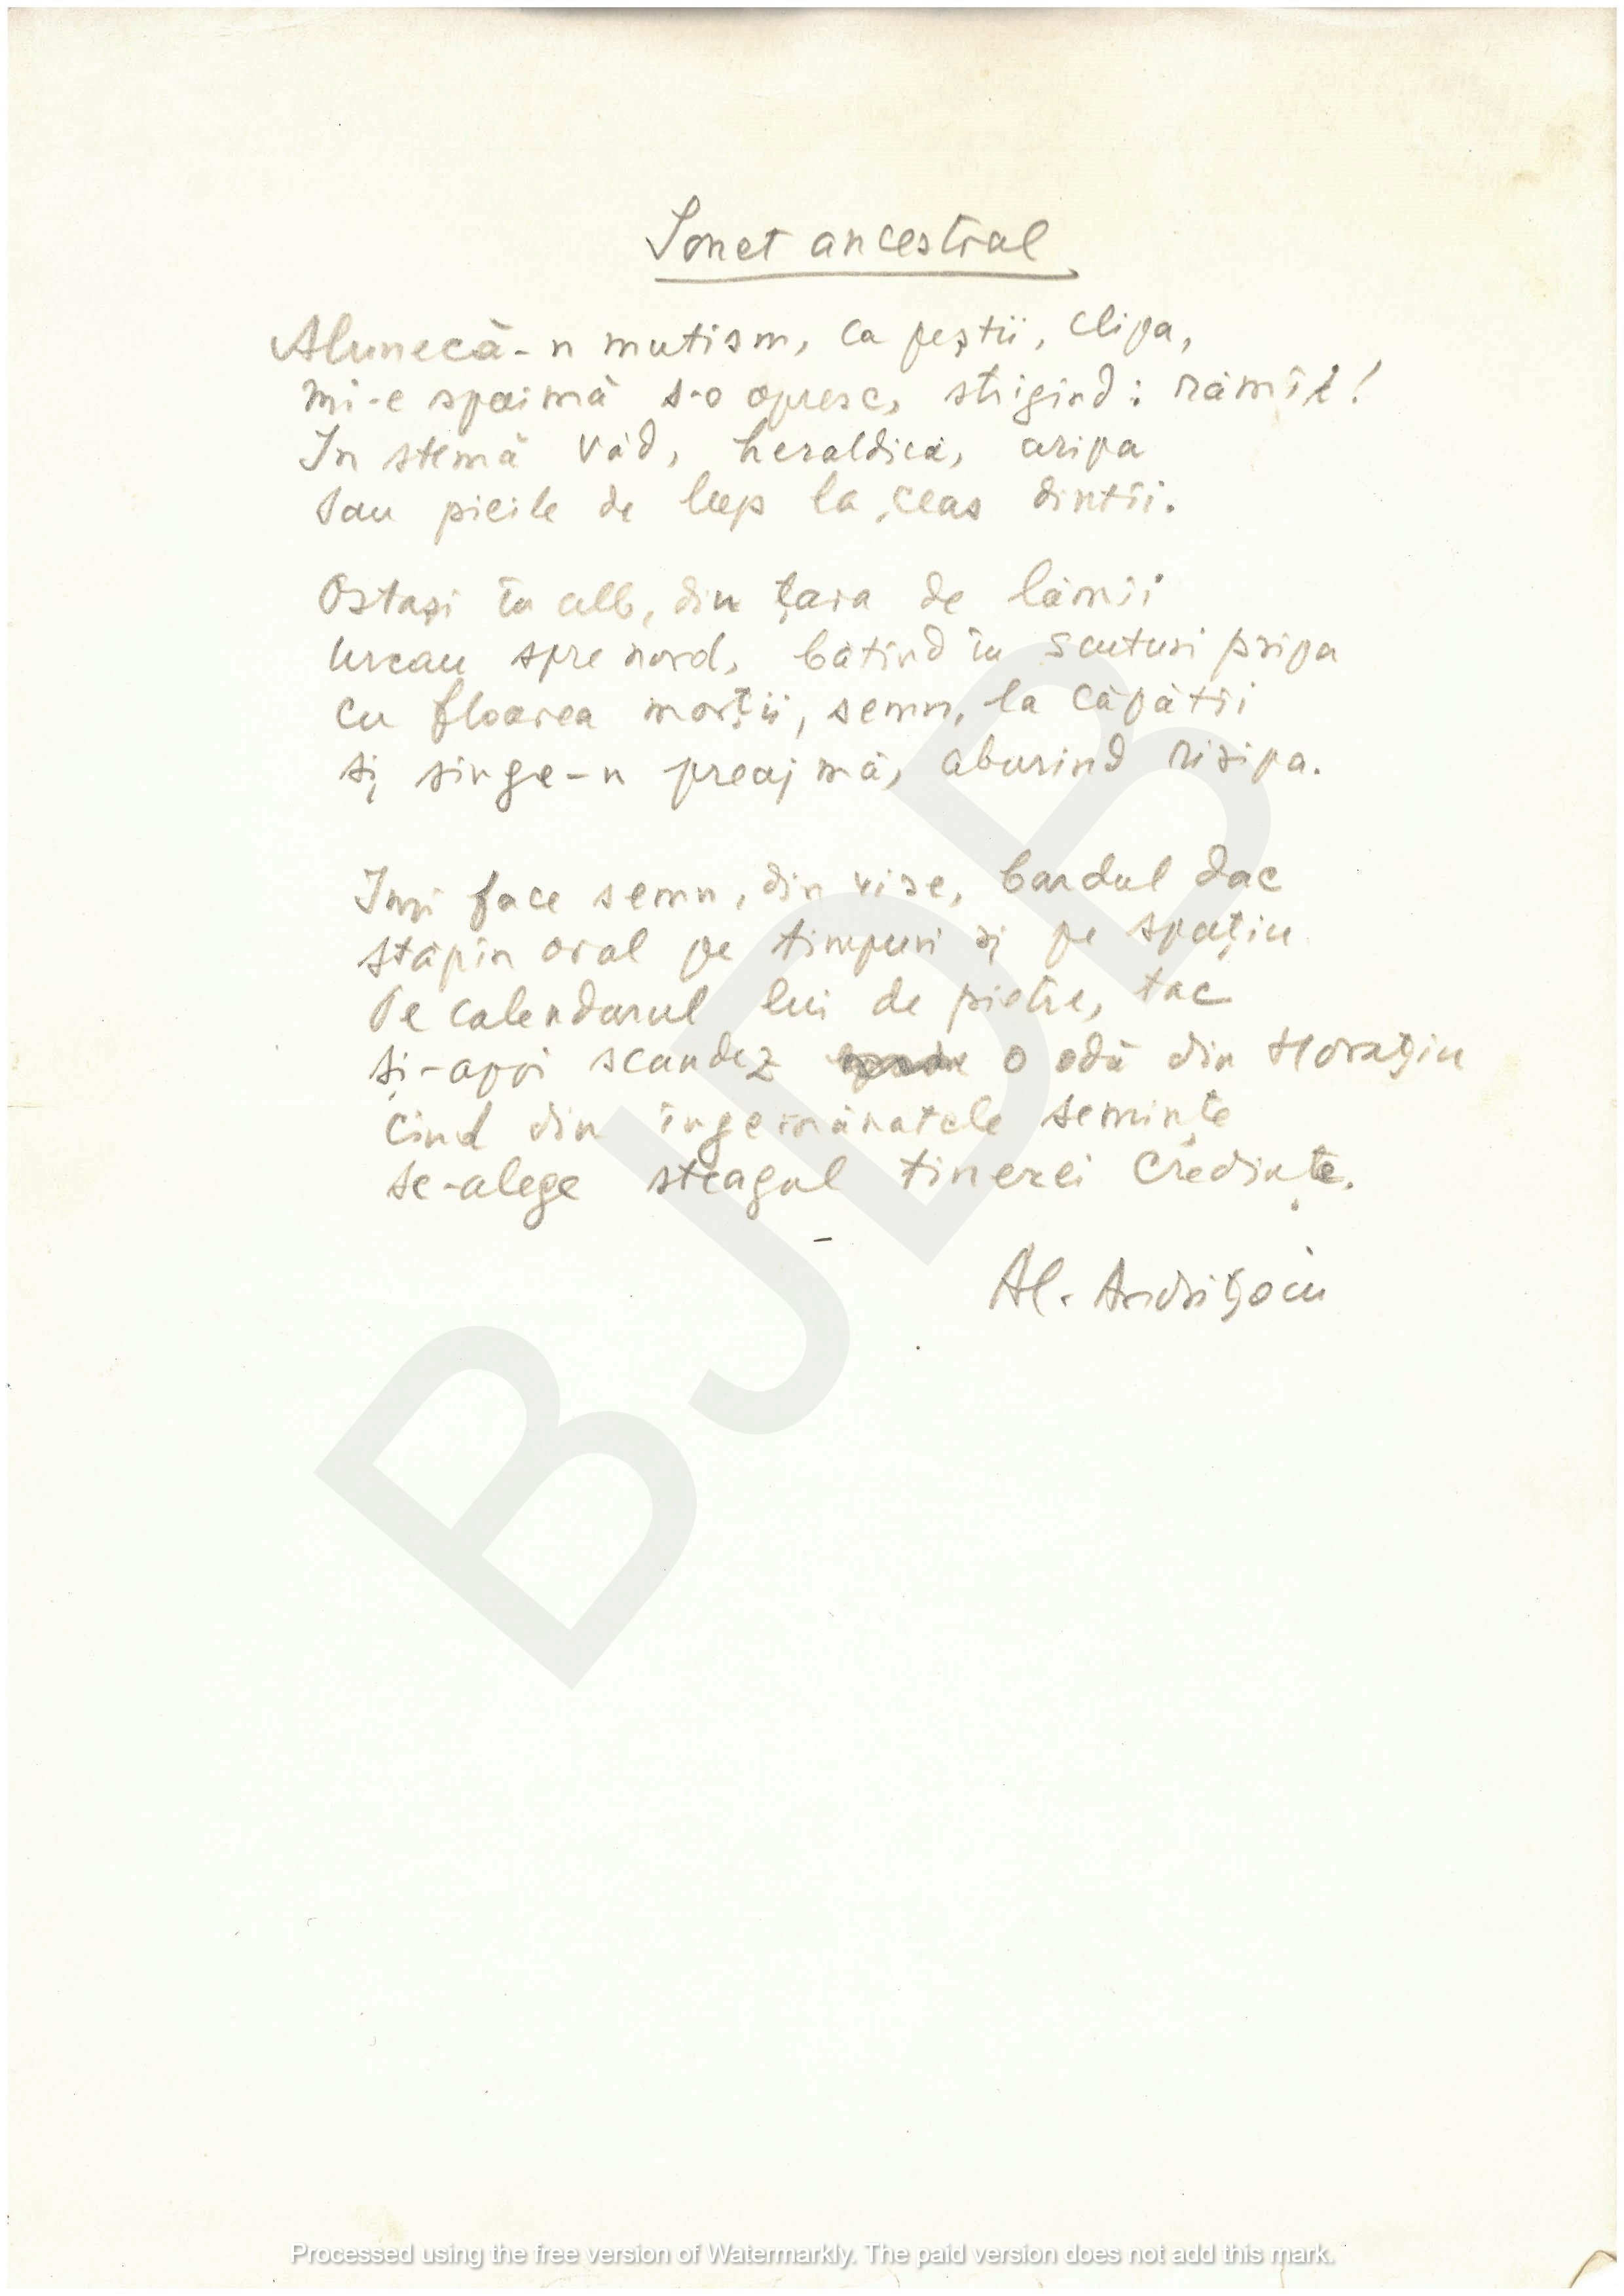 Sonet ancestral
Alunecă-n mutism, ca peștii, clipa,
mi-e spaimă s-o opresc, strigînd: rămîi!
In stemă văd, heraldică, aripa
sau pieile de lup la ceas dintîi.
Ostași în alb, din țara de lămîi
urcau spre nord, bătînd în scuturi pripa
cu floarea morții, semn, la căpătîi
și sînge-n preajmă, aburind risipa.
Imi face semn, din vise, bardul dac
stăpîn oral pe timpuri și pe spațiu
Pe calendarul lui de pietre, tac
și-apoi scandez o odă din Horațiu
cînd din îngemănatele semințe
se-alege steagul tinerei credințe.
Al. Andrițoiu
BJDB
Processed using the free version of Watermarkly. The paid version does not add this mark.